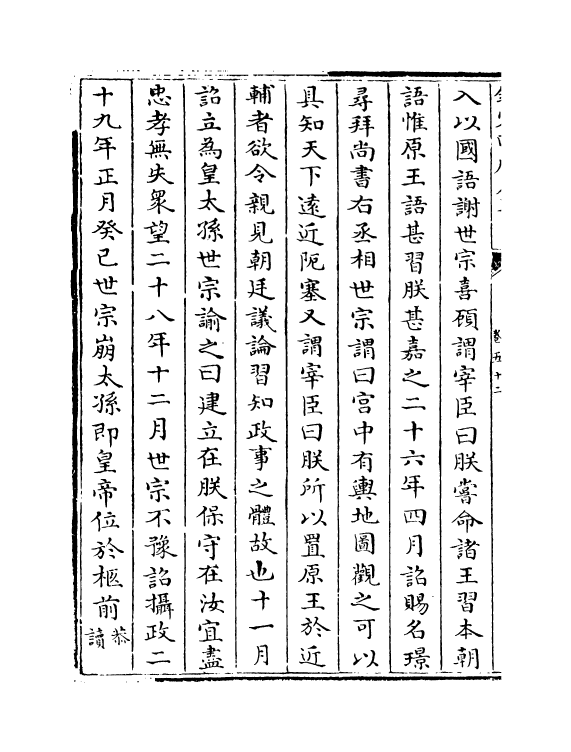 入以國語謝世宗喜碩謂宰臣曰朕嘗命諸王習本朝
語惟原王語甚習朕甚嘉之二十六年四月詔賜名璟
尋拜尚書右丞相世宗謂曰宫中有輿地圖觀之可以
具知天下逺近阨塞又謂宰臣曰朕所以置原王於近
輔者欲令親見朝廷議論習知政事之體故也十一月
詔立為皇太孫世宗諭之曰建立在朕保守在汝宜盡
忠孝無失衆望二十八年十二月世宗不豫詔攝政二
十九年正月癸巳世宗崩太孫即皇帝位於柩前恭
讀
卷五十二